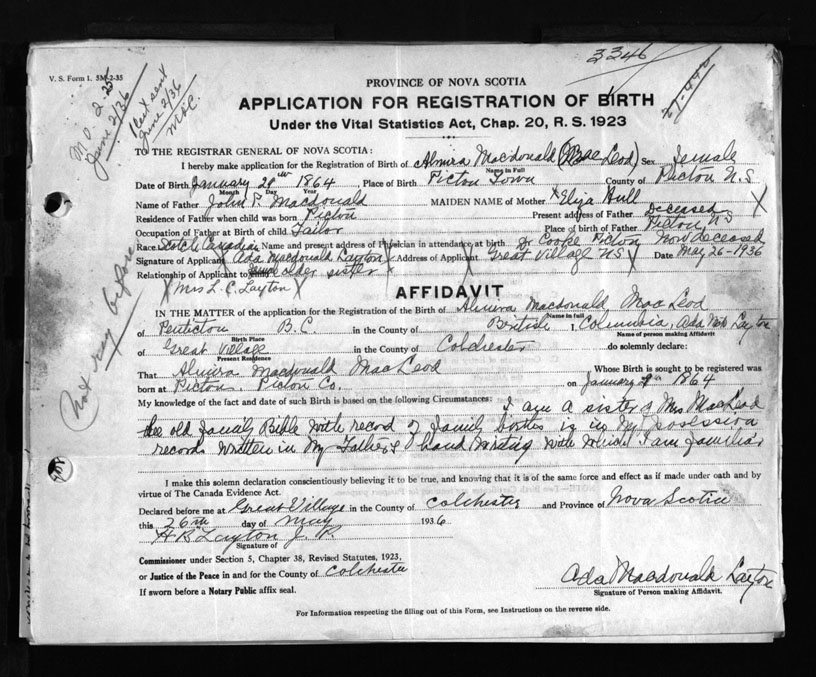 3346
V. S. Form 1. 5M-2-35
M O 2.25
June 2/36
sent
June 2/36
PROVINCE OF NOVA SCOTIA
APPLICATION FOR REGISTRATION OF BIRTH
Under the Vital Statistics Act, Chap. 20, R. S. 1923
TO THE REGISTRAR GENERAL OF NOVA SCOTIA:
I hereby make application for the Registration of Birth of Almira Macdonald (MacLeod) Sex female
Name in Full
Date of Birth January 1864 Place of Birth Pictou Town County of Pictou N.S
Month Day Year
Name of Father John P. Macdonald MAIDEN NAME of Mother Eliza Hull
Residence of Father when child was born Pictou Present address of Father Deceased
Occupation of Father at Birth of child Tailor Place of birth of Father Pictou NS
Race Scotch Canadian Name and present address of Physician in attendance at birth Dr Cooke Pictou Now deceased
Signature of Applicant Ada Macdonald Layton Address of Applicant Great Village NS Date May 26-1936
Relationship of Applicant to older sister
Mrs L. C. Layton
AFFIDAVIT
IN THE MATTER of the application for the Registration of Birth of Almira Macdonald MacLeod
Name in full
of Penticton B.C in the County of British Columbia I, Ada Layton
Birth Place Name of person making Affidavit
of Great Village in the County of Colchester do solemnly declare:
Present Residence
That Almira Macdonald MacLeod Whose Birth is sought to be registered was
born at Pictou, Pictou Co. on January 1864
My knowledge of the fact and date of such Birth is based on the following Circumstances: I am a sister of Mrs MacLeod
old family Bible with record of family births is in my possession
records written in my Father's hand writing with which I am familiar
I make this solemn declaration conscientiously believing it to be true, and knowing that it is of the same force and effect as if made under oath and by
virtue of The Canada Evidence Act.
Declared before me at Great Village in the County of Colchester and Province of Nova Scotia
this 26th day of May 1936
H B Layton J. P.
Signature of
Commissioner under Section 5, Chapter 38, Revised Statutes, 1923,
or Justice of the Peace in and for the County of Colchester
If sworn before a Notary Public affix seal.
Ada Macdonald Layton
Signature of Person making Affidavit.
For Information respecting the filling out of this Form, see Instructions on the reverse side.
Not reg before